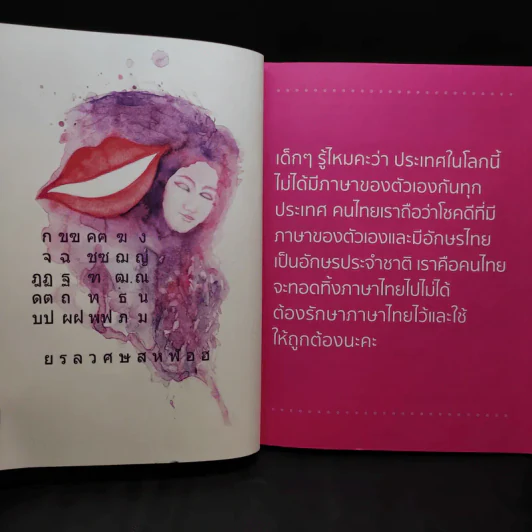 ก ขฃ คฅ ฆ ง
จ ฉ ชซ ฌญ
ฎฏ ฐ ฑ ฒ ณ
ดต ถ ท ธ น
บป ผฝ พฟ ภ ม
ย ร ล ว ศ ษ ส ห ฬ อ ฮ
เด็กๆ รู้ไหมคะว่า ประเทศในโลกนี้
ไม่ได้มีภาษาของตัวเองกันทุก
ประเทศ คนไทยเราถือว่าโชคดีที่มี
ภาษาของตัวเองและมีอักษรไทย
เป็นอักษรประจำชาติ เราคือคนไทย
จะทอดทิ้งภาษาไทยไปไม่ได้
ต้องรักษาภาษาไทยไว้และใช้
ให้ถูกต้องนะคะ